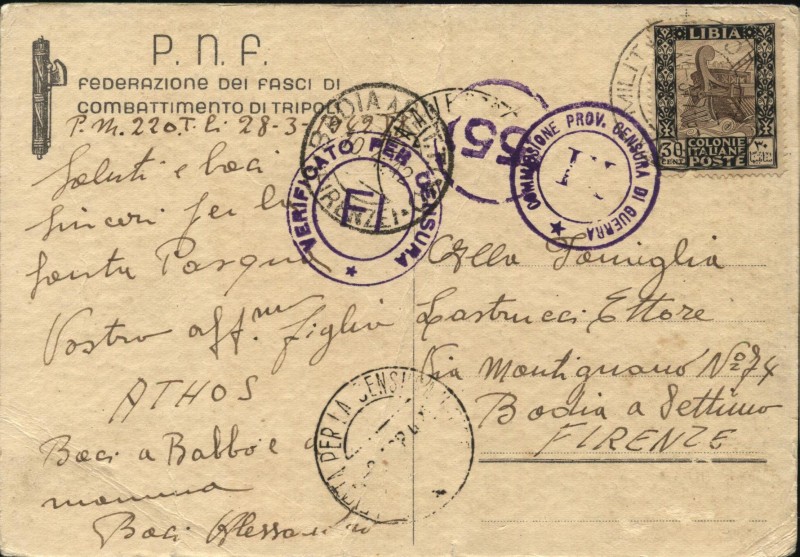 P.N.F.
FEDERAZIONE DEI FASCI DI
COMBATTIMENTO DI TRIPOLI
P.M. 220 T. li 28-3-
Saluti e baci
sinceri per la
Santa Pasqua
Vostro aff.mo figlio
ATHOS
Baci a Babbo e
mamma
Baci Alessandro
VERIFICATO PER CENSURA
55
COMMISSIONE PROV. CENSURA DI GUERRA
MILIT
LIBIA
30
CENT
COLONIE
ITALIANE
POSTE
Alla Famiglia
Lastrucci Ettore
Via Montignano No 74
Badia a Settimo
FIRENZE
PER LA CENSURA